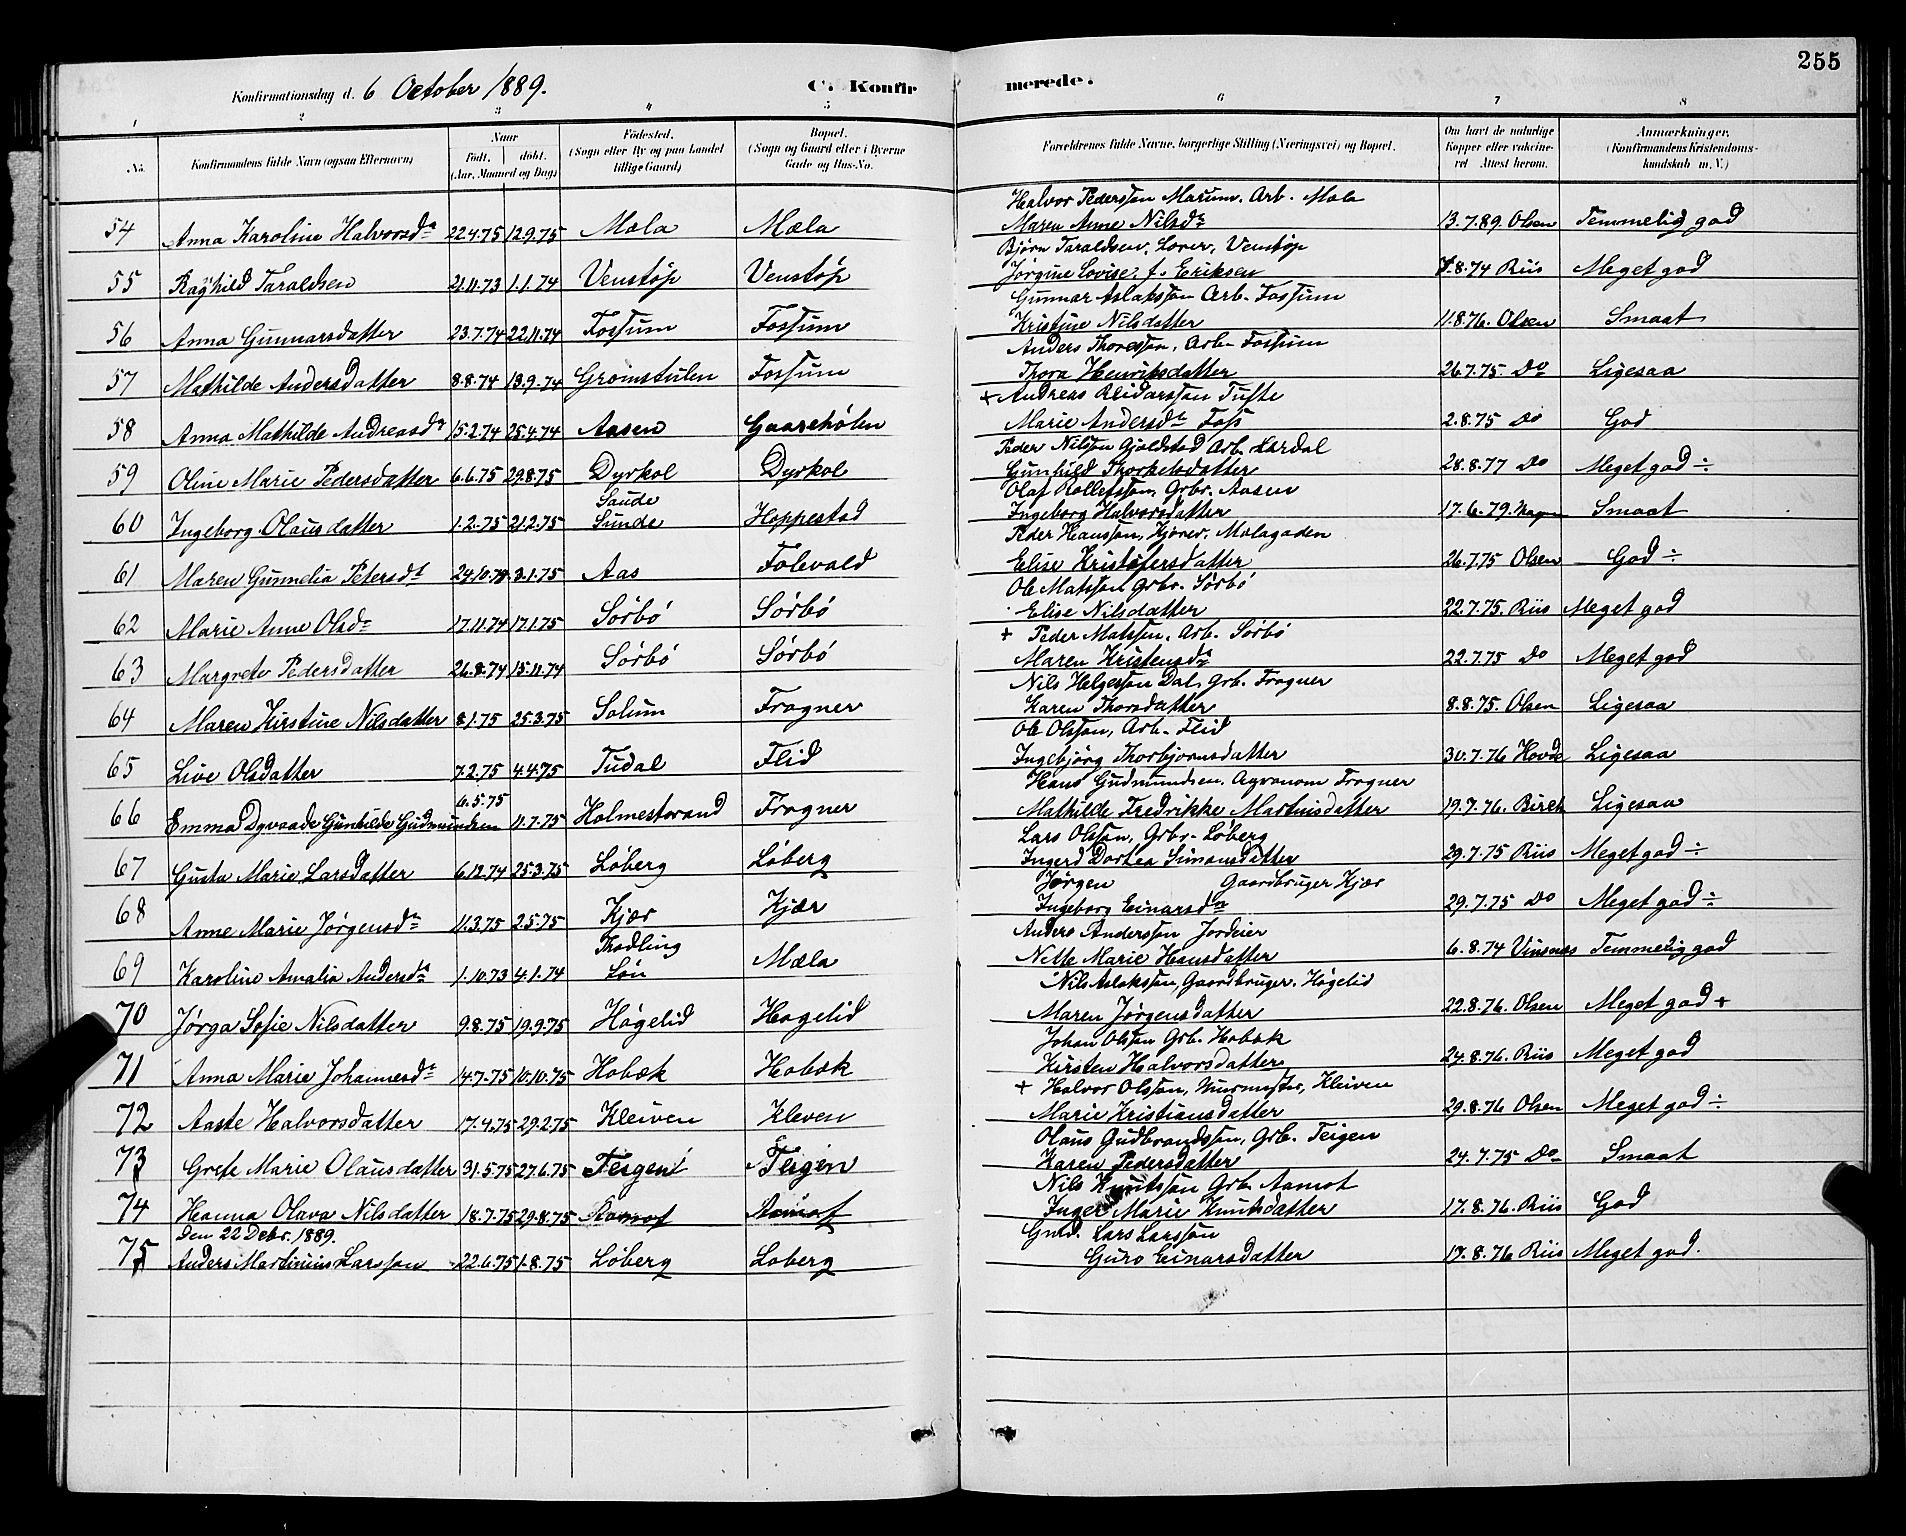 255
Konfirmationsdag d. 6 October 1889. C. Konfirmerede.
1 2 3 4 5 6 7 8
No. Konfirmandens fulde Navn (ogsaa Efternavn) Naar Födt. döbt. (Aar, Maaned og Dag) Födested. (Sogn eller By og paa Landet tillige Gaard) Bopæl. (Sogn og Gaard eller i Byerne Gade og Hus-No. Forældrenes fulde Navne, borgerlige Stilling (Næringsvei) og Bopæl. Om havt de naturlige Kopper eller vakcineret Attest herom. Anmærkninger. (Konfirmandens Kristendomskundskab m. V.)
Halvor Pedersson Marum. Arb. Mæla
54 Anna Karoline Halvorsdr 22.4.75 12.9.75 Mæla Mæla Maren Anne Nilsdr 13.7.89 Olsen Temmelig god
Björn Taraldsen, Lover, Venstöp
55 Raghild Taraldsen 21.11.73 1.1.74 Venstöp Venstöp Jörgine Lovise, f. Eriksen 7.8.74 Riis Meget god
Gunnar Aslaksson Arb. Fossum
56 Anna Gunnarsdatter 23.7.74 22.11.74 Fossum Fossum Kristine Nilsdatter 11.8.76. Olsen Smaat
Anders Thoresson, Arb. Fossum
57 Mathilde Andersdatter 8.8.74 13.9.74 Grömstulen Fossum Thora Henriksdatter 26.7.75. Do Ligesaa
+ Andreas Reidarsson Tufte
58 Anna Mathilde Andreasdr 15.2.74 25.4.74 Aasen Gaarehölen Marie Andersdr Foss 2.8.75 Do God
Peder Nilsson Gjeldstad Arb. Lardal
59 Oline Marie Pedersdatter 6.6.75 29.8.75 Dyrkol Dyrkol Gunhild Thorkelsdatter 28.8.77 Do Meget god ÷
Saude Olaf Rollefsson, Grbr. Aasen
60 Ingeborg Olausdatter 1.2.75 21.2.75 Sunde Hoppestad Ingeborg Halvorsdatter 17.6.79. Smaat
Peder Hansson, Kjörer, Mælagaden
61 Maren Gunnelia Petersdt 24.10.74 3.1.75 Aas Folevald Elise Kristofersdatter 26.7.75 Olsen God ÷
Ole Matsson Grbr. Sörbö
62 Marie Anne Olsdr 17.11.74 17.1.75 Sörbö Sörbö Elise Nilsdatter 22.7.75. Riis Meget god
+ Peder Matsson, Arb. Sörbö
63 Margrete Pedersdatter 26.8.74 15.11.74 Sörbö Sörbö Maren Kristensdr 22.7.75 Do Meget god
Nils Helgesson Dal, Grb. Frogner
64 Maren Kirstine Nilsdatter 8.1.75 25.3.75 Solum Frogner Karen Thorsdatter 8.8.75. Olsen Ligesaa
Ole Olsson, Arb. Flid
65 Live Olsdatter 7.2.75 4.4.75 Tudal Flid Ingebjörg Thorbjörnsdatter 30.7.76 Hovde Ligesaa
6.5.75 Hans Gudmundsen. Agronom Frogner
66 Emma Dyvaade Gunhilde Gudmundsen 11.7.75 Holmestrand Frogner Mathilde Fredrikke Martinisdatter 19.7.76. Birch Ligesaa
Lars Olsson, Grbr. Löberg
67 Gusta Marie Larsdatter 6.12.74 25.3.75 Löberg Löberg Ingerd Dortea Simonsdatter 29.7.75 Riis Meget god ÷
Jørgen Gaardbruger Kjær
68 Anne Marie Jørgensdr 11.3.75 2.5.75 Kjær Kjær Ingeborg Einarsdr 29.7.75 Do Meget god ÷
Anders Andersson Jordeier
69 Karoline Amalia Andersdt 1.10.73 4.1.74 Lön Mæla Nille Marie Hansdatter 6.8.74 Temmelig god
Nils Aslaksson, Gaardbruger. Högelid
70 Jørga Sofie Nilsdatter 9.8.75 19.9.75 Högelid Hogelid Maren Jørgensdatter 22.8.76. Olsen Meget god +
Johan Olsson Grb. Hobæk
71 Anna Marie Johannesdr 14.7.75 10.10.75 Hobæk Hobæk Kirsten Halvorsdatter 24.8.76. Riis Meget god
+ Halvor Olsson, Murmester, Kleiven
72 Aaste Halvorsdatter 17.4.75 29.2.75 Kleiven Kleven Marie Kristiansdatter 29.8.76 Olsen Meget god ÷
Olaus Gudbrandsson, Grb. Teigen
73 Grete Marie Olausdatter 31.5.75 27.6.75 Teigen Teigen Karen Pedersdatter 24.7.75 Do Smaat
Nils Knutsson Grb. Aamot
74 Hanna Olava Nilsdatter 18.7.75 29.8.75 Aamot Aamot Inger Marie Knutsdatter 17.8.76. Riis God
Den 22 Debr. 1889. Gmd. Lars Larsson
75 Anders Martinius Larsson 22.6.75 1.8.75 Löberg Loberg Guro Einarsdatter 17.8.76 Riis Meget god.